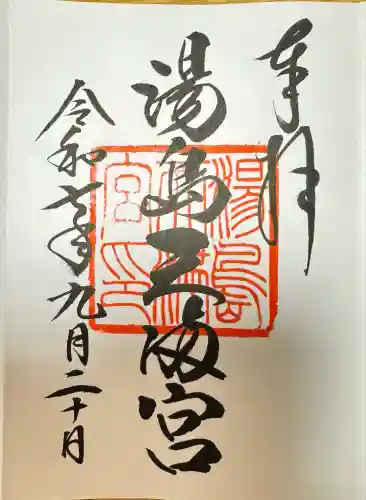 奉拝
湯島天満宮
令和七年九月二十日
湯島天満宮印